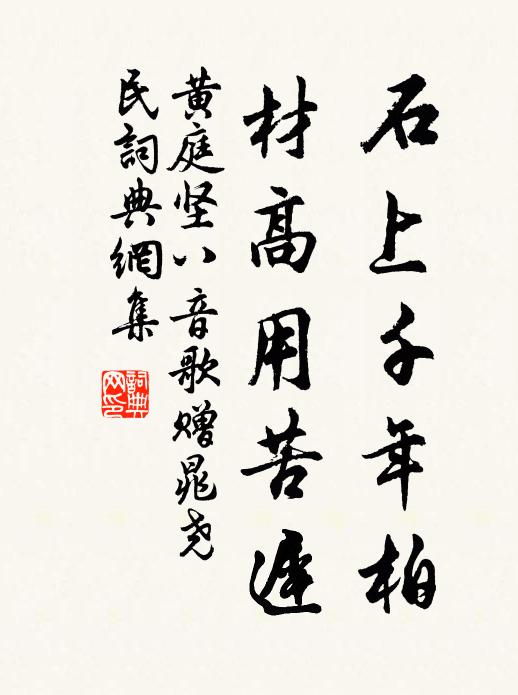 石上千年柏
材高用苦遲
黄庭坚八音歌赠晁尧
民詞典網集
詞典网印